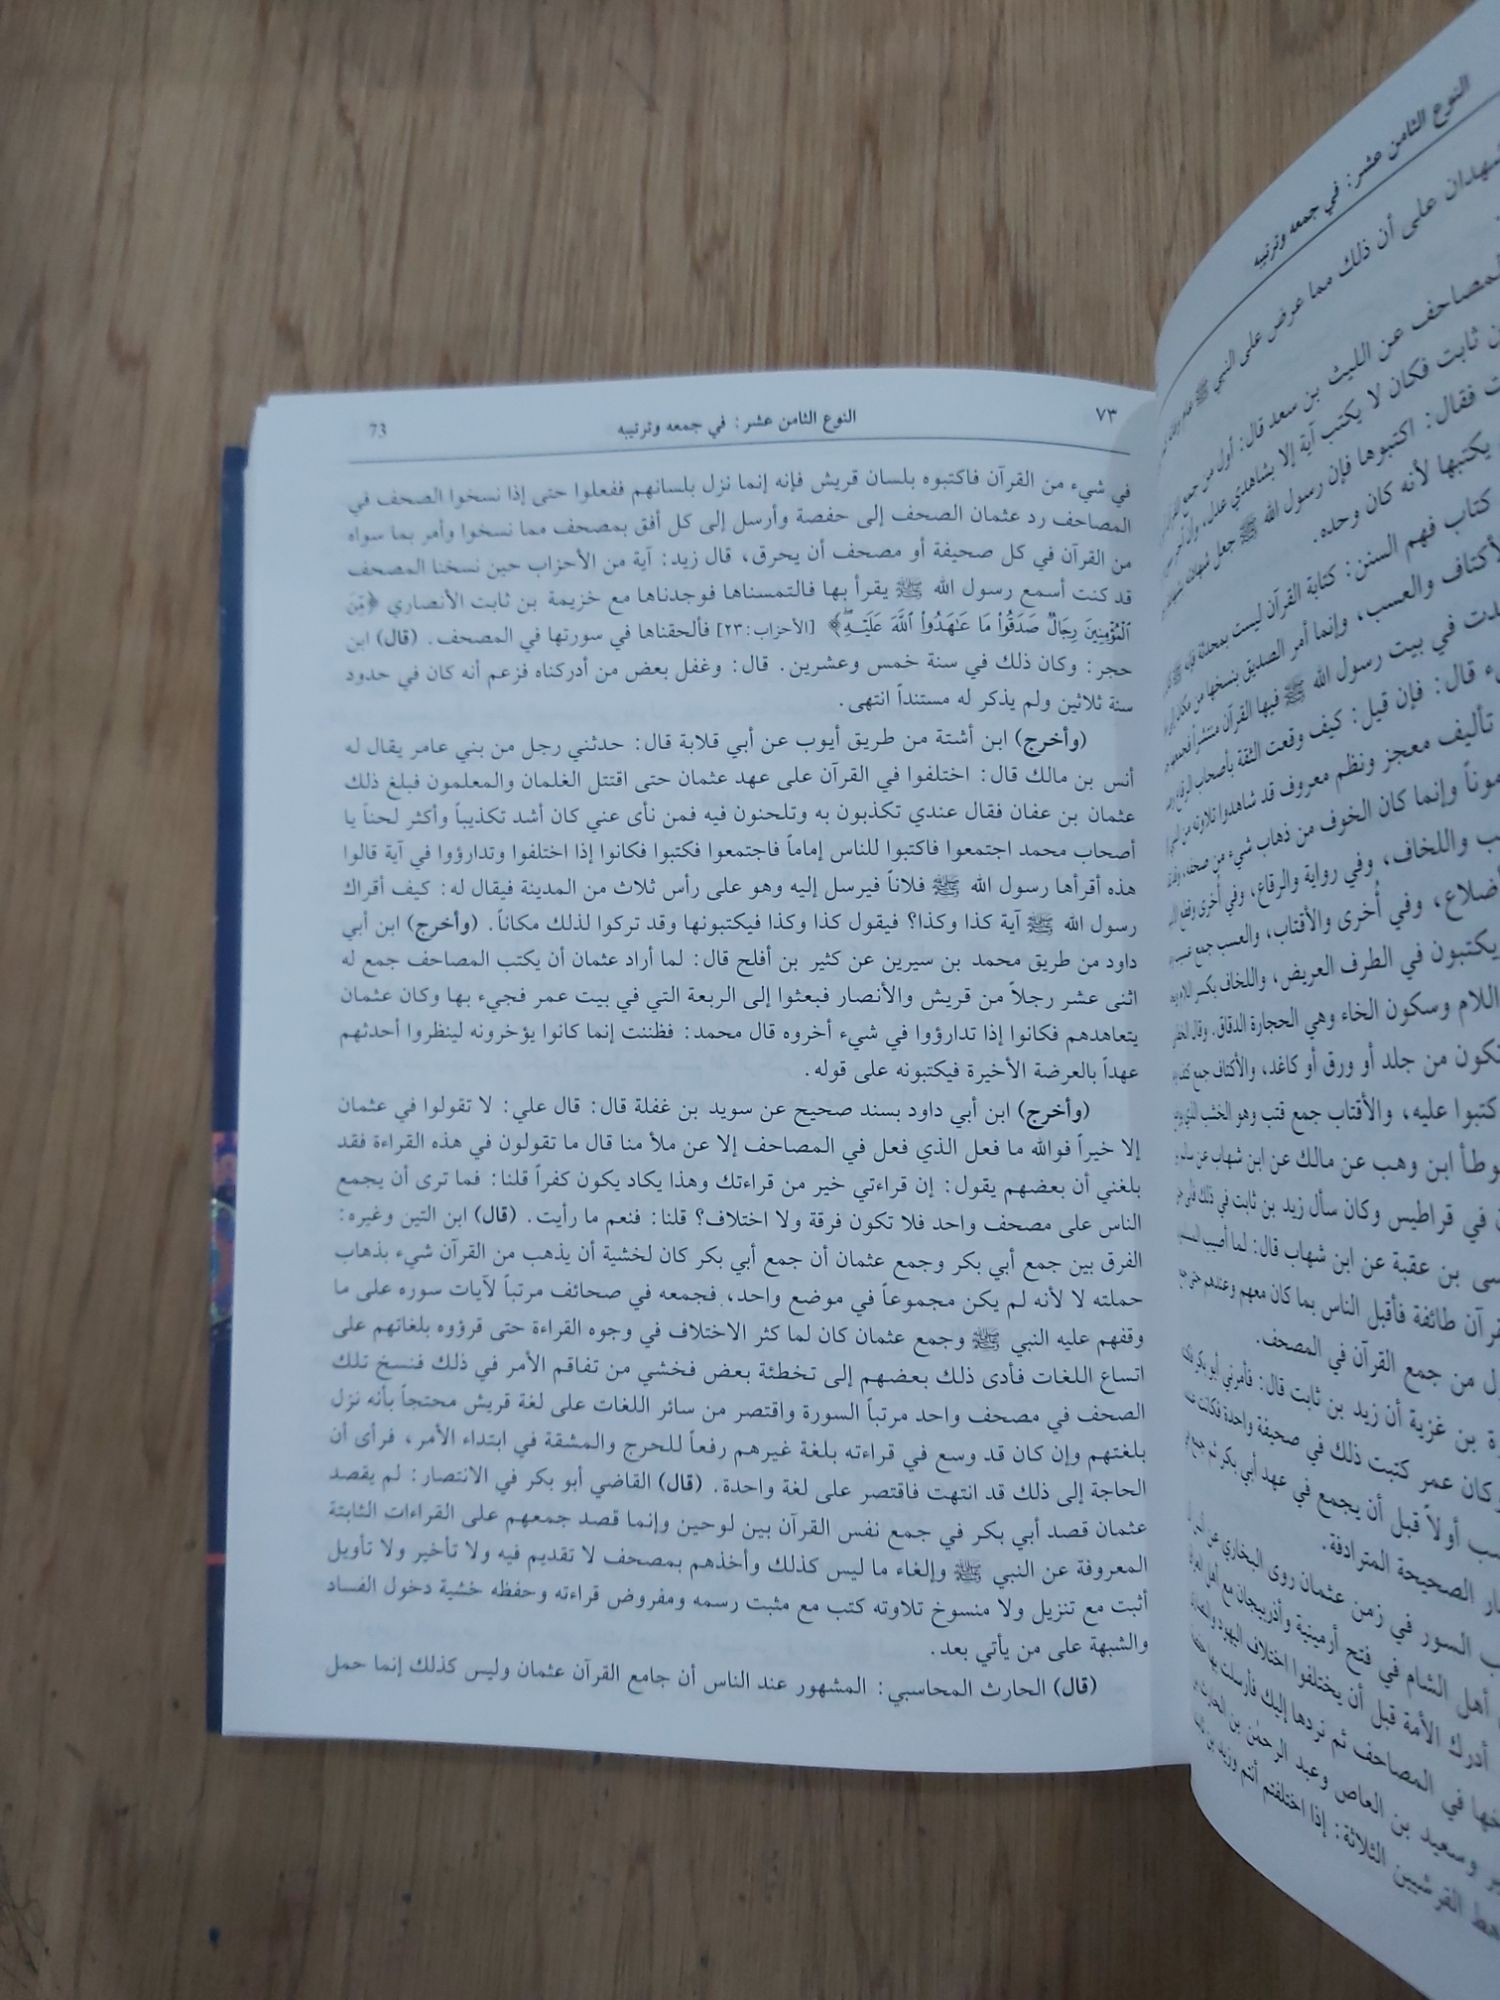 ٧٣ النوع الثامن عشر: في جمعه وترتيبه 73
في شيء من القرآن فاكتبوه بلسان قريش فإنه إنما نزل بلسانهم ففعلوا حتى إذا نسخوا الصحف في
المصاحف رد عثمان الصحف إلى حفصة وأرسل إلى كل أفق بمصحف مما نسخوا وأمر بما سواه
من القرآن في كل صحيفة أو مصحف أن يحرق، قال زيد: آية من الأحزاب حين نسخنا المصحف
قد كنت أسمع رسول الله ﷺ يقرأ بها فالتمسناها فوجدناها مع خزيمة بن ثابت الأنصاري ﴿مِّنَ
ٱلْمُؤْمِنِينَ رِجَالٌ صَدَقُوا۟ مَا عَٰهَدُوا۟ ٱللَّهَ عَلَيْهِ﴾ [الأحزاب: ٢٣] فألحقناها في سورتها في المصحف. (قال) ابن
حجر: وكان ذلك في سنة خمس وعشرين. قال: وغفل بعض من أدركناه فزعم أنه كان في حدود
سنة ثلاثين ولم يذكر له مستنداً انتهى.
(وأخرج) ابن أشتة من طريق أيوب عن أبي قلابة قال: حدثني رجل من بني عامر يقال له
أنس بن مالك قال: اختلفوا في القرآن على عهد عثمان حتى اقتتل الغلمان والمعلمون فبلغ ذلك
عثمان بن عفان فقال عندي تكذبون به وتلحنون فيه فمن نأى عني كان أشد تكذيباً وأكثر لحناً يا
أصحاب محمد اجتمعوا فاكتبوا للناس إماماً فاجتمعوا فكتبوا فكانوا إذا اختلفوا وتدارؤوا في آية قالوا
هذه أقرأها رسول الله ﷺ فلاناً فيرسل إليه وهو على رأس ثلاث من المدينة فيقال له: كيف أقراك
رسول الله ﷺ آية كذا وكذا؟ فيقول كذا وكذا فيكتبونها وقد تركوا لذلك مكاناً. (وأخرج) ابن أبي
داود من طريق محمد بن سيرين عن كثير بن أفلح قال: لما أراد عثمان أن يكتب المصاحف جمع له
اثنى عشر رجلاً من قريش والأنصار فبعثوا إلى الربعة التي في بيت عمر فجيء بها وكان عثمان
يتعاهدهم فكانوا إذا تدارؤوا في شيء أخروه قال محمد: فظننت إنما كانوا يؤخرونه لينظروا أحدثهم
عهداً بالعرضة الأخيرة فيكتبونه على قوله.
(وأخرج) ابن أبي داود بسند صحيح عن سويد بن غفلة قال: قال علي: لا تقولوا في عثمان
إلا خيراً فوالله ما فعل الذي فعل في المصاحف إلا عن ملأ منا قال ما تقولون في هذه القراءة فقد
بلغني أن بعضهم يقول: إن قراءتي خير من قراءتك وهذا يكاد يكون كفراً قلنا: فما ترى أن يجمع
الناس على مصحف واحد فلا تكون فرقة ولا اختلاف؟ قلنا: فنعم ما رأيت. (قال) ابن التين وغيره:
الفرق بين جمع أبي بكر وجمع عثمان أن جمع أبي بكر كان لخشية أن يذهب من القرآن شيء بذهاب
حملته لا لأنه لم يكن مجموعاً في موضع واحد، فجمعه في صحائف مرتباً لآيات سوره على ما
وقفهم عليه النبي ﷺ وجمع عثمان كان لما كثر الاختلاف في وجوه القراءة حتى قرؤوه بلغاتهم على
اتساع اللغات فأدى ذلك بعضهم إلى تخطئة بعض فخشي من تفاقم الأمر في ذلك فنسخ تلك
الصحف في مصحف واحد مرتباً السورة واقتصر من سائر اللغات على لغة قريش محتجاً بأنه نزل
بلغتهم وإن كان قد وسع في قراءته بلغة غيرهم رفعاً للحرج والمشقة في ابتداء الأمر، فرأى أن
الحاجة إلى ذلك قد انتهت فاقتصر على لغة واحدة. (قال) القاضي أبو بكر في الانتصار: لم يقصد
عثمان قصد أبي بكر في جمع نفس القرآن بين لوحين وإنما قصد جمعهم على القراءات الثابتة
المعروفة عن النبي ﷺ وإلغاء ما ليس كذلك وأخذهم بمصحف لا تقديم فيه ولا تأخير ولا تأويل
أثبت مع تنزيل ولا منسوخ تلاوته كتب مع مثبت رسمه ومفروض قراءته وحفظه خشية دخول الفساد
والشبهة على من يأتي بعد.
(قال) الحارث المحاسبي: المشهور عند الناس أن جامع القرآن عثمان وليس كذلك إنما حمل
النوع الثامن عشر: في جمعه وترتيبه
على أن ذلك مما عرض على النبي ﷺ
عن الليث بن سعد قال: أول من جمع
ثابت فكان لا يكتب آية إلا بشاهدي عدل، وأن
فقال: اكتبوها فإن رسول الله ﷺ جعل
يكتبها لأنه كان وحده.
كتاب فهم السنن: كتابة القرآن ليست بمحدثة
والعسب، وإنما أمر الصديق بنسخها من مكان
في بيت رسول الله ﷺ فيها القرآن منتشراً
قال: فإن قيل: كيف وقعت الثقة بأصحاب الرقاع
تأليف معجز ونظم معروف قد شاهدوا تلاوته من
وإنما كان الخوف من ذهاب شيء من صحفه،
واللخاف، وفي رواية والرقاع، وفي أخرى
وفي أُخرى والأقتاب، والعسب جمع
يكتبون في الطرف العريض، واللخاف بكسر
اللام وسكون الخاء وهي الحجارة الدقاق. وقال
تكون من جلد أو ورق أو كاغد، والأكتاف جمع
كتبوا عليه، والأقتاب جمع قتب وهو الخشب
ابن وهب عن مالك عن ابن شهاب عن
في قراطيس وكان سأل زيد بن ثابت في ذلك
بن عقبة عن ابن شهاب قال: لما أصيب
طائفة فأقبل الناس بما كان معهم وعندهم حتى
من جمع القرآن في المصحف.
بن غزية أن زيد بن ثابت قال: فأمرني أبو بكر
عمر كتبت ذلك في صحيفة واحدة فكانت
أولاً قبل أن يجمع في عهد أبي بكر ثم جمع
الصحيحة المترادفة.
السور في زمن عثمان روى البخاري عن
أهل الشام في فتح أرمينية وأذربيجان مع أهل
أدرك الأمة قبل أن يختلفوا اختلاف اليهود
في المصاحف ثم نردها إليك فأرسلت بها
وسعيد بن العاص وعبد الرحمٰن بن الحارث
القرشيين الثلاثة: إذا اختلفتم أنتم وزيد بن